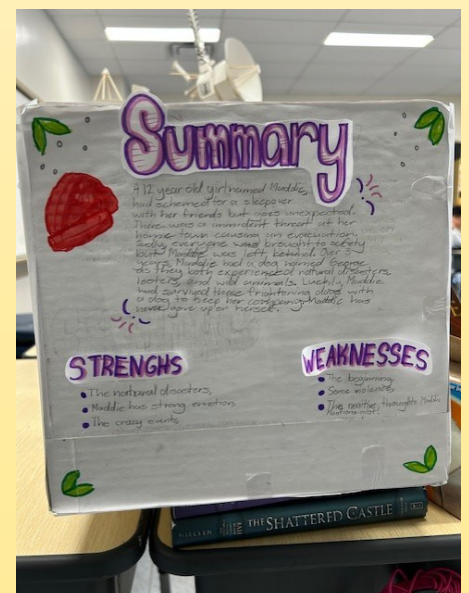 Summary
A 12 year old girl named Maddie,
had schemed for a sleepover
with her friends but goes unexpected.
There was a imminent threat at her
home town causing an evacuation.
Sadly, everyone was brought to safety
but Maddie was left behind. Over 3
years, Maddie had a dog named George
as they both experienced natural disasters,
looters, and wild animals. Luckily, Maddie
had survived these frightening days with
a dog to keep her company. Maddie has
never gave up on herself.
STRENGHS
The natural disasters,
Maddie has strong emotion,
The crazy events
WEAKNESSES
The beginning,
Some violence,
The negative thoughts Maddie
THE SHATTERED CASTLE